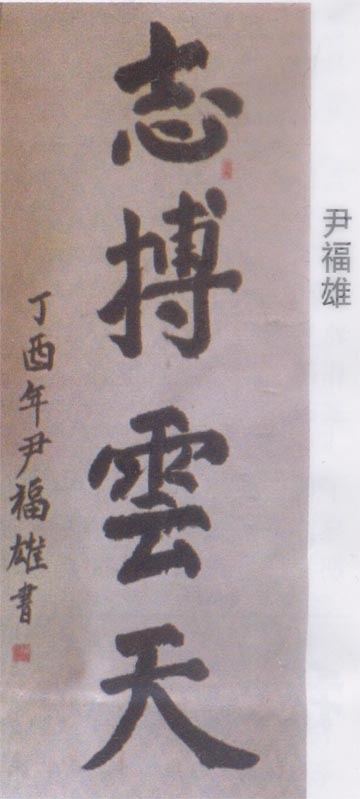 志搏雲天
丁酉年尹福雄書
尹福雄